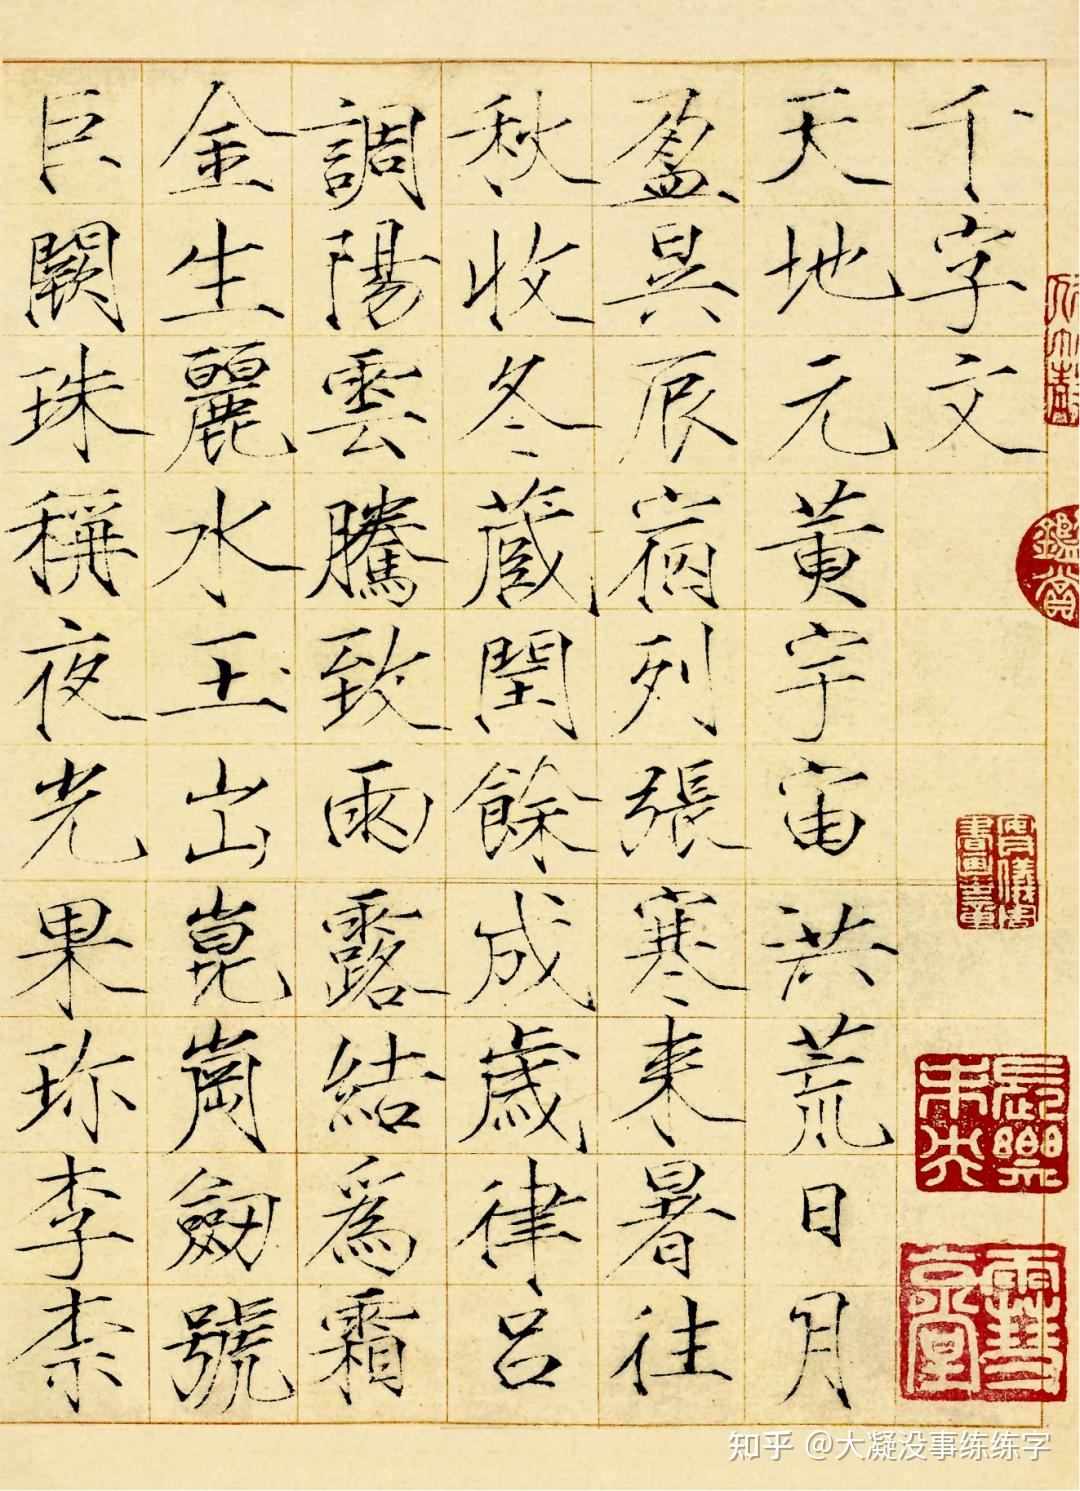 千字文
天地元黄宇宙洪荒日月
盈昃辰宿列張寒来暑往
秋收冬蔵閏餘成歳律吕
調陽雲騰致雨露結爲霜
金生麗水玉出崑崗劔號
巨闕珠稱夜光果珍李柰
鑑賞
知乎 @大凝没事练练字